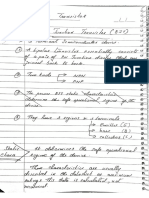 Transistor
Junction Transistor (BJT)
is a current
① A bipolar transistor essentially consist
of a pair of PN Junction diodes that are
joined back to back.
② Two kinds → NPN
→ PNP
③ The power BJT static characteristics
determine the safe operational regions of the
device.
④ They have 3 regions & 3 terminals
→ Emitter (E)
→ base (B)
→ collector (C)
Static
Chara
It determines the safe operational
regions of the device
These characteristics are usually
described in the tabulated or
ratings. This data is calculated, not